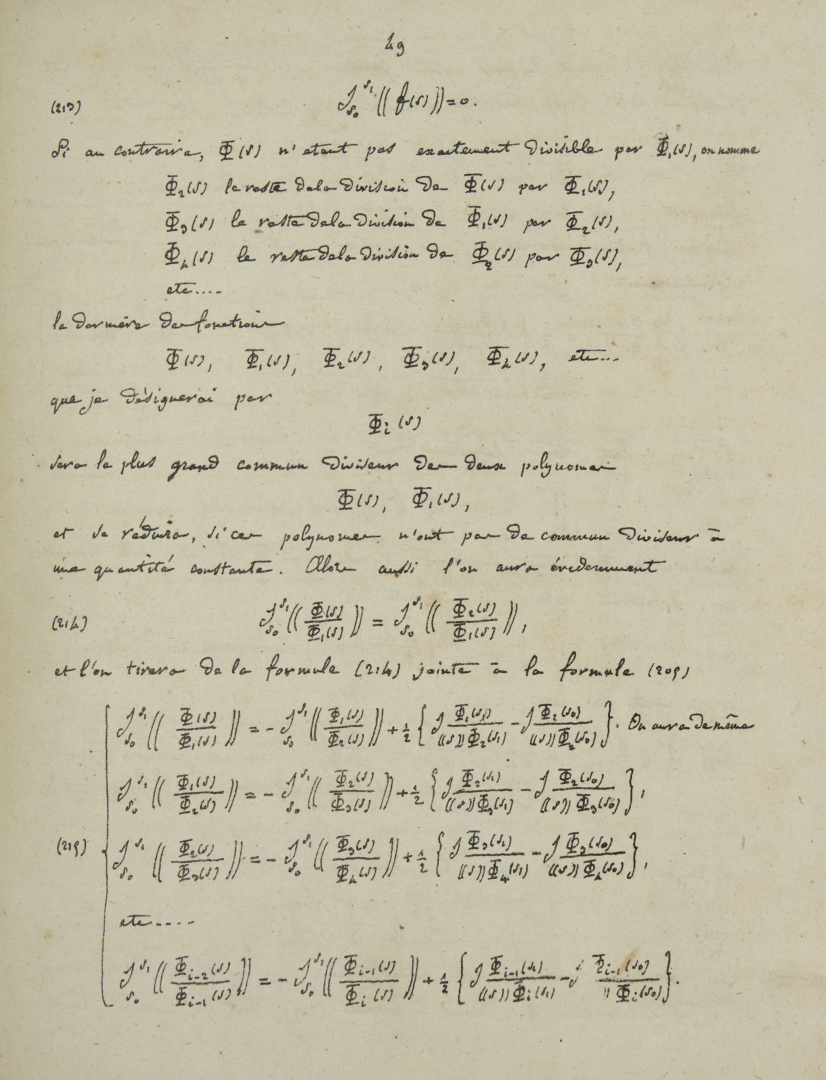 49
(213) 𝓙_{s₀}^{s₁} ((f(s))) = 0.
Si au contraire, Φ(s) n'étant pas exactement divisible par Φ₁(s), on nomme
Φ₂(s) le reste de la division de Φ(s) par Φ₁(s),
Φ₃(s) le reste de la division de Φ₁(s) par Φ₂(s),
Φ₄(s) le reste de la division de Φ₂(s) par Φ₃(s),
etc....
la dernière des fonctions
Φ(s), Φ₁(s), Φ₂(s), Φ₃(s), Φ₄(s), etc...
que je désignerai par
Φᵢ(s)
sera le plus grand commun diviseur des deux polynomes
Φ(s), Φ₁(s),
et se réduira, si ces polynomes n'ont pas de commun diviseur à
une quantité constante. Alors aussi l'on aura évidemment
(214) 𝓙_{s₀}^{s₁} ((Φ(s)/Φ₁(s))) = 𝓙_{s₀}^{s₁} ((Φ₂(s)/Φ₁(s))),
et l'on tirera de la formule (214) jointe à la formule (209)
𝓙_{s₀}^{s₁} ((Φ(s)/Φ₁(s))) = - 𝓙_{s₀}^{s₁} ((Φ₁(s)/Φ₂(s))) + ½ {𝓙 Φ₁(s₁)/((s)) Φ₂(s₁) - 𝓙 Φ₂(s₀)/((s)) Φ₂(s₀)}. On aura de même
𝓙_{s₀}^{s₁} ((Φ₁(s)/Φ₂(s))) = - 𝓙_{s₀}^{s₁} ((Φ₂(s)/Φ₃(s))) + ½ {𝓙 Φ₂(s₁)/((s)) Φ₃(s₁) - 𝓙 Φ₂(s₀)/((s)) Φ₃(s₀)},
(215) 𝓙_{s₀}^{s₁} ((Φ₂(s)/Φ₃(s))) = - 𝓙_{s₀}^{s₁} ((Φ₃(s)/Φ₄(s))) + ½ {𝓙 Φ₃(s₁)/((s)) Φ₄(s₁) - 𝓙 Φ₃(s₀)/((s)) Φ₄(s₀)},
etc....
𝓙_{s₀}^{s₁} ((Φᵢ₋₂(s)/Φᵢ₋₁(s))) = - 𝓙_{s₀}^{s₁} ((Φᵢ₋₁(s)/Φᵢ(s))) + ½ {𝓙 Φᵢ₋₁(s₁)/((s)) Φᵢ(s₁) - 𝓙 Φᵢ₋₁(s₀)/)) Φᵢ(s₀)}.